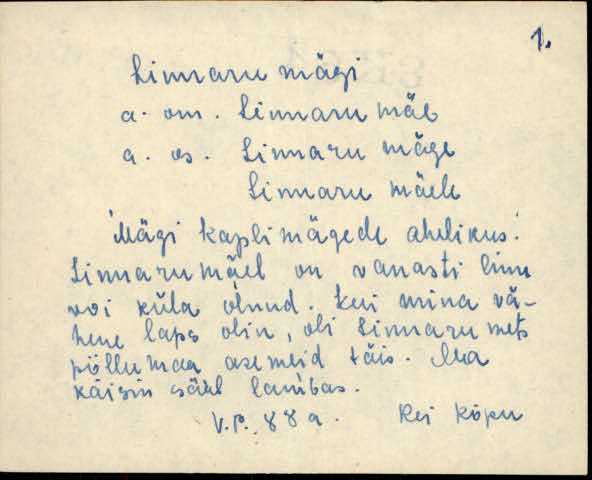 1.
Linnaru mägi
a. om. Linnaru mäe
a. os. Linnaru mäge
Linnaru mäele
Mägi kaplimägede ahelikus.
Linnarumäel on vanasti linn
või küla olnud. Kui mina vä-
hene laps olin, oli Linnaru mets
põllumaa asemeid täis. Ma
käisin sääl lambas.
V.P. 88 a. Rei Kõpu